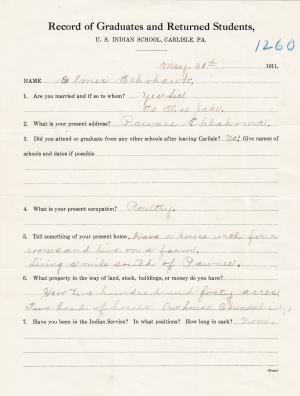 Record of Graduates and Returned Students,
U. S. INDIAN SCHOOL, CARLISLE, PA.
1260
May 31st 1911.
NAME Elmer Echohawk.
1. Are you married and if so to whom? Yes Sir,
To Alice Jake.
2. What is your present address? Pawnee Oklahoma.
3. Did you attend or graduate from any other schools after leaving Carlisle? No! Give names of
schools and dates if possible
4. What is your present occupation? Poultry.
5. Tell something of your present home. Have a house with four
rooms and live on a farm.
Living a mile south of Pawnee.
6. What property in the way of land, stock, buildings, or money do you have?
Have two hundred and forty acres
Two head of horses. One house.
7. Have you been in the Indian Service? In what positions? How long in each? None.
(Over)